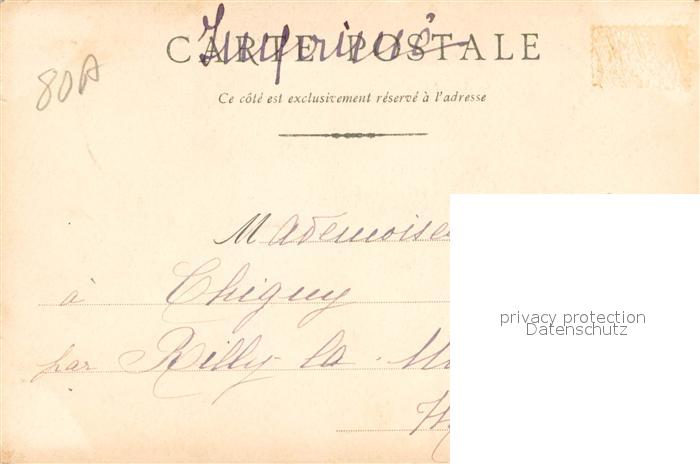 Imprimés
CARTE POSTALE
80A
Ce côté est exclusivement réservé à l'adresse
Mademoise
à Chigny
par Rilly-la-M
privacy protection
Datenschutz